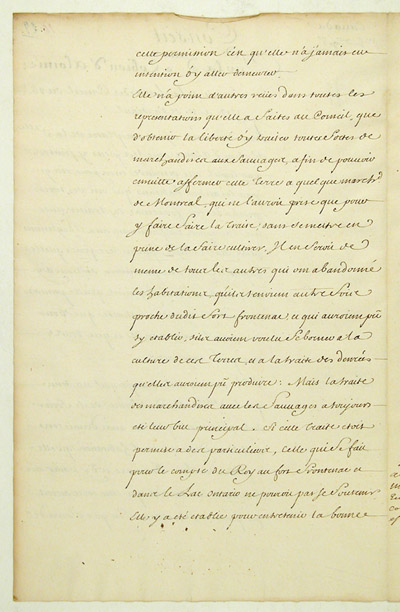 cette permission c'est qu'elle n'a jamais eu
intention d'y aller demeurer.
Elle n'a point d'autres veües dans toutes les
representations qu'elle a faites au Conseil, que
d'obtenir la liberté d'y traiter toutes sortes de
marchandises aux Sauvages, afin de pouvoir
ensuitte affermer cette Terre a quelque march.d
de Montreal, qui ne l'auroit prise que pour
y faire faire la traite, sans se mettre en
peine de la faire cultiver. Il en seroit de
meme de tous les autres qui on abandonné
les habitations, qu'ils tenoient autre fois
proche dudit fort frontenac, et qui auroient pû
s'y etablir, s'ils avoient voulu se borner a la
culture de ces Terres, et a la traite des denrées
qu'elles auroient pû produire : Mais la traite
des marchandises avec les Sauvages a toujours
eté leur but principal. Si cette traite etoit
permise a des particuliers, celle qui se fait
pour le compte du Roy au fort frontenac et
dans le Lac ontario ne pouroit pas se soutenir
Elle y a eté etablie pour entretenir la bonne